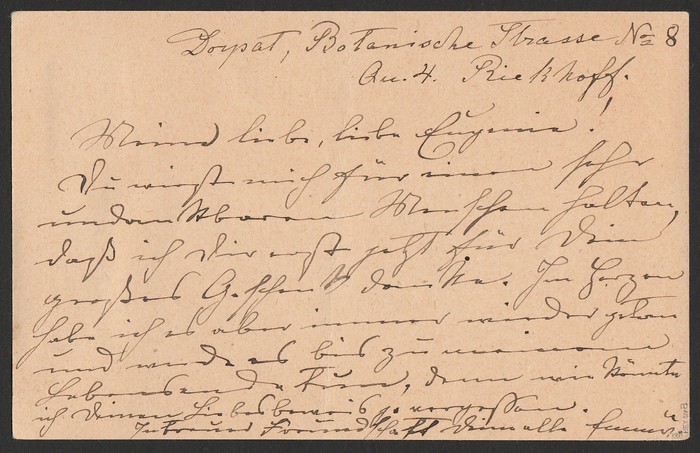 Dorpat, Botanische Strasse No 8
Qu. 4. Riekhoff.
Meine liebe, liebe Eugenie!
Du wirst mich für einen sehr
undankbaren Menschen halten,
daß ich Dir erst jetzt für Dein
großes Geschenk danke. Im Herzen
habe ich es aber immer wieder getan
und werde es bis zu meinem
Lebensende tun, denn wie könnte
ich Deinen Liebesbeweis je vergessen.
In treuer Freundschaft Deine alte